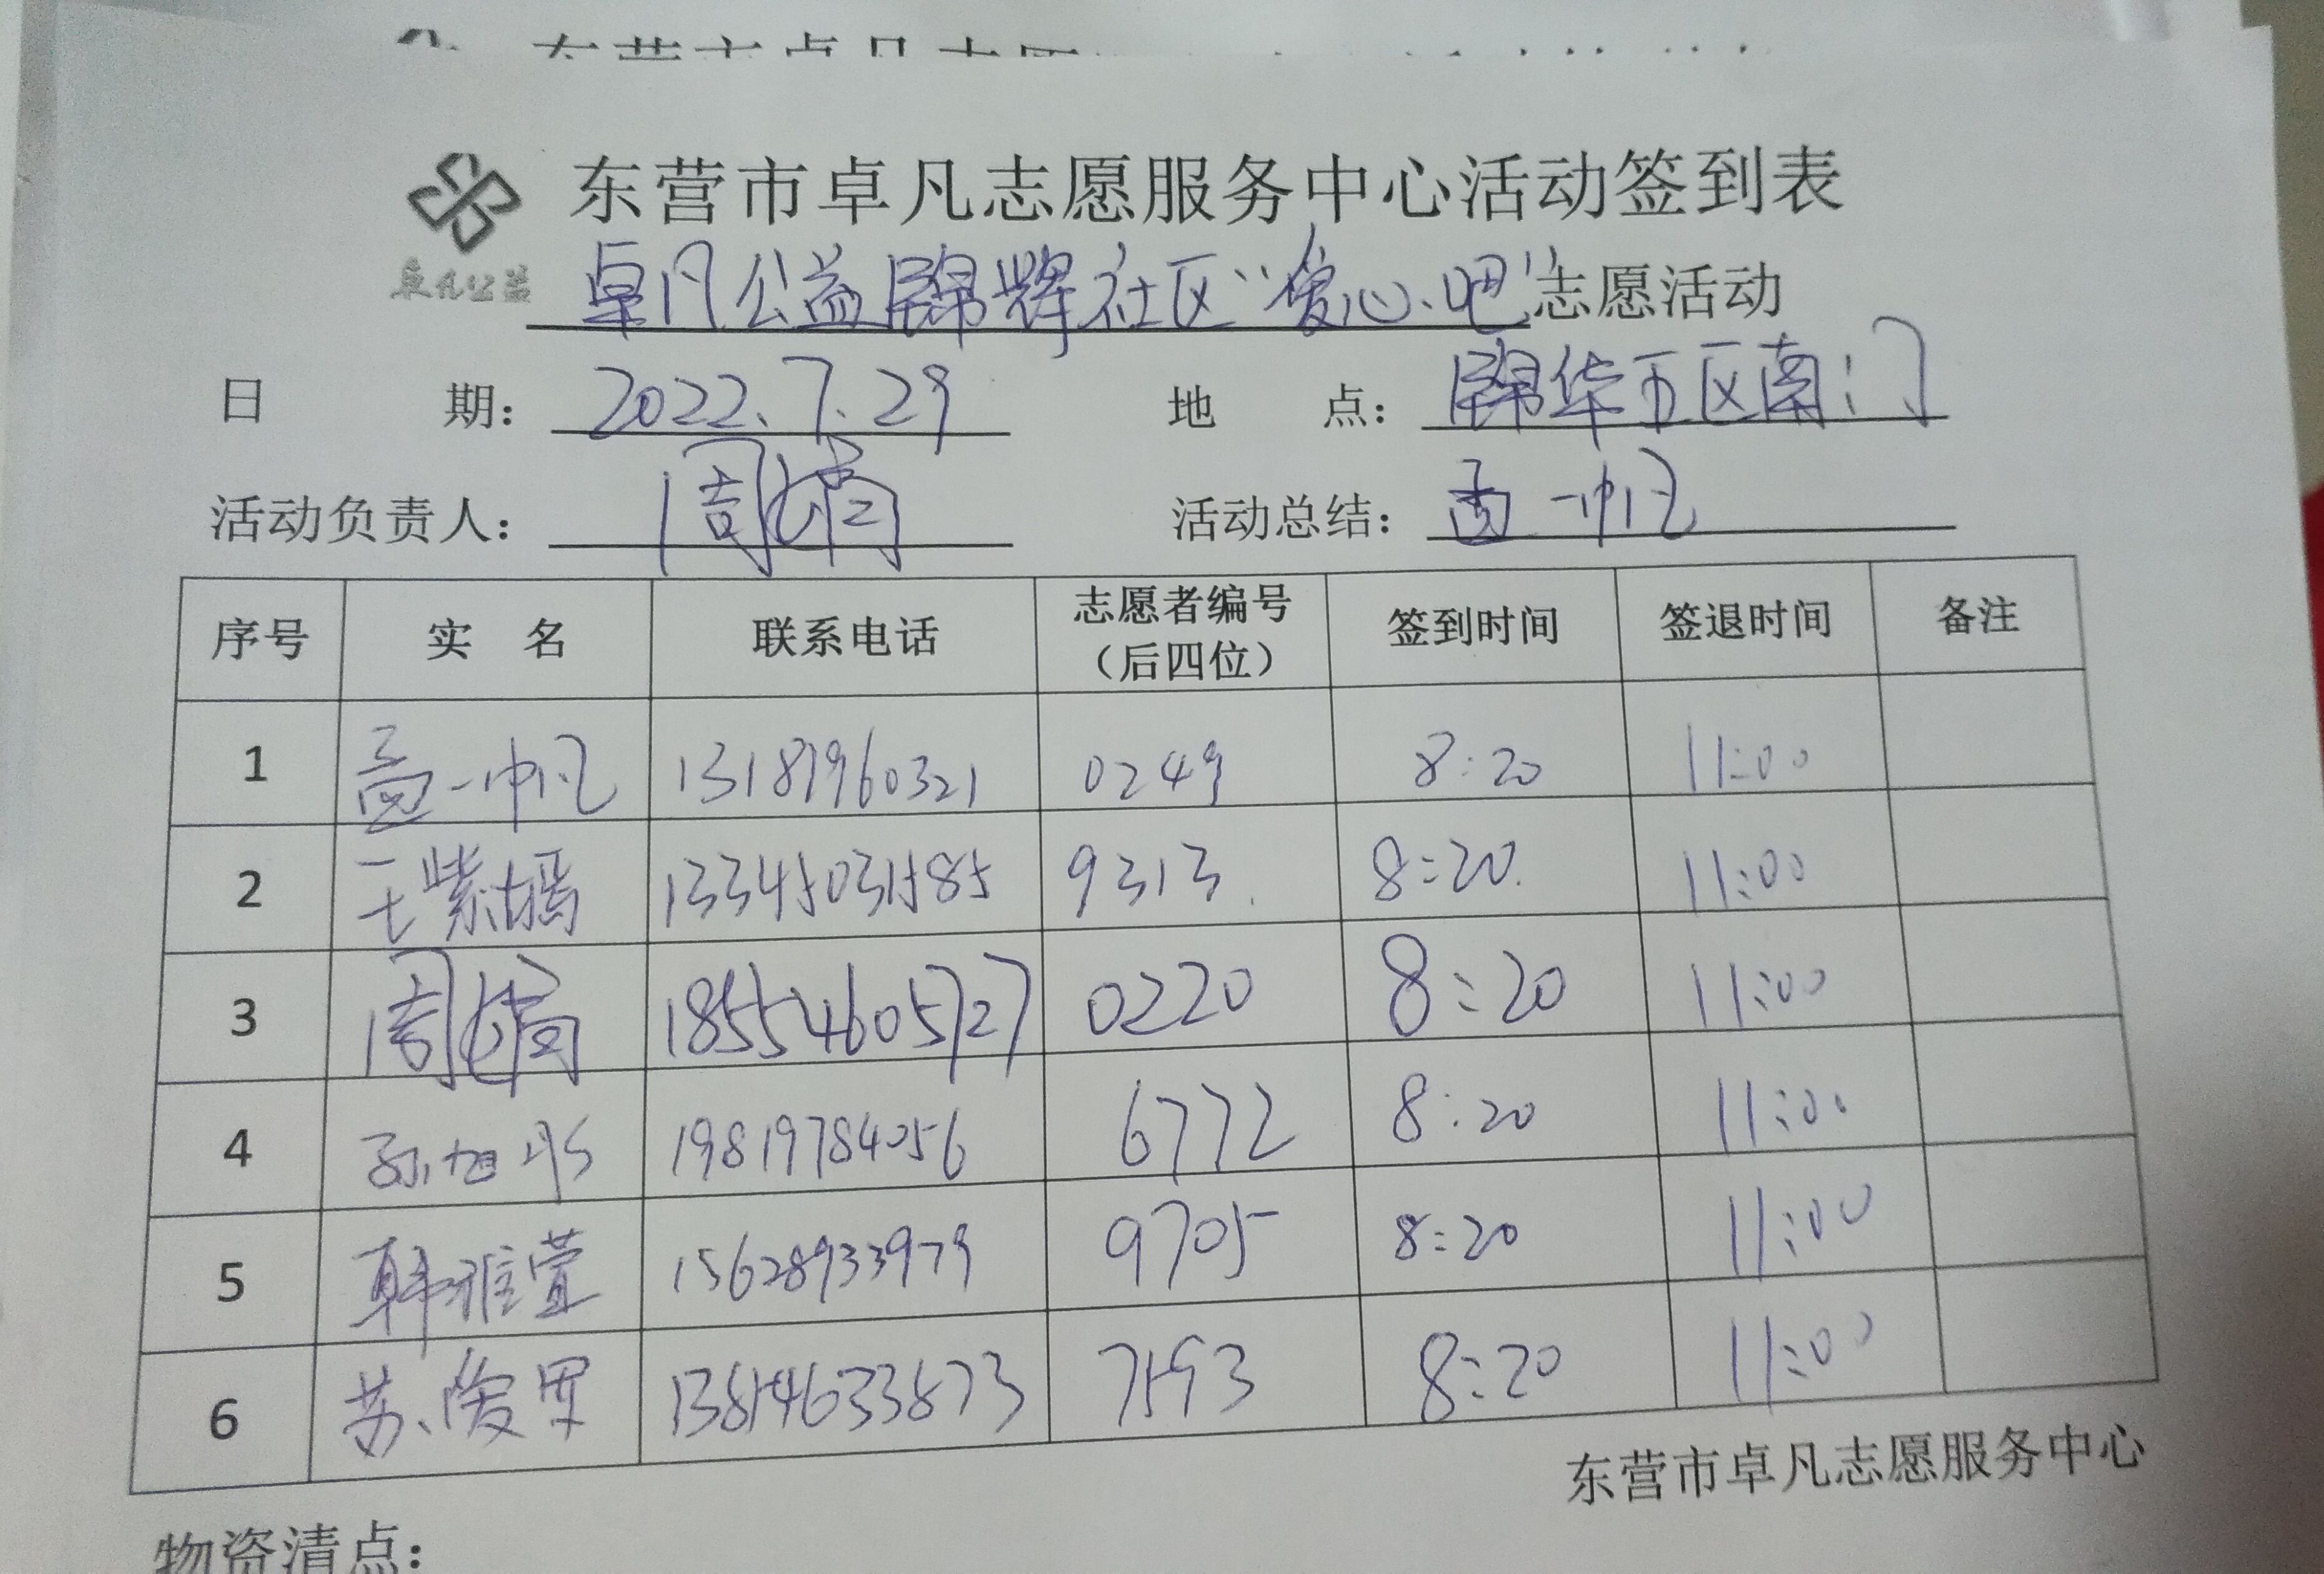 东营市卓凡志愿服务中心活动签到表
卓凡公益
卓凡公益锦辉社区“爱心吧”志愿活动
日期：2022.7.29 地点：锦华五区南门
活动负责人：周婧 活动总结：高一帆
序号 实名 联系电话 志愿者编号（后四位） 签到时间 签退时间 备注
1 高一帆 13181960321 0249 8:20 11:00
2 王紫嫣 13345031585 9313 8:20 11:00
3 周婧 18554605727 0220 8:20 11:00
4 孙旭彤 19819784056 6772 8:20 11:00
5 韩雅萱 15628933979 9705 8:20 11:00
6 苏俊 13854633873 7593 8:20 11:00
东营市卓凡志愿服务中心
物资清点：